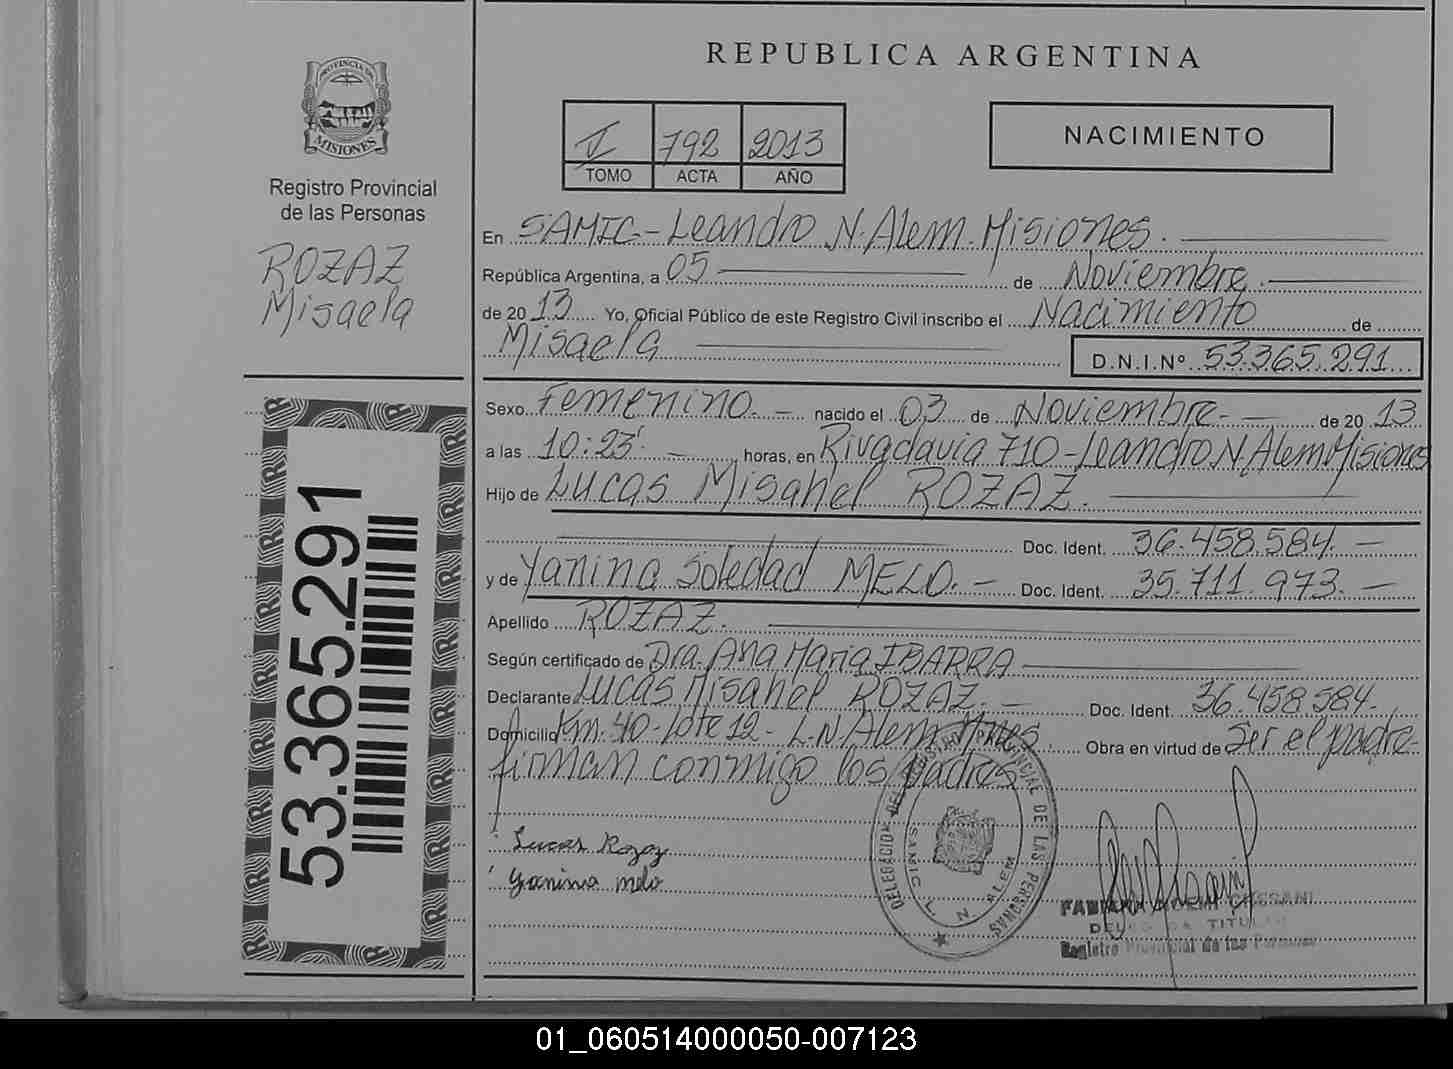 PROVINCIA DE
MISIONES
Registro Provincial
de las Personas
ROZAZ
Misaela
53.365.291
REPUBLICA ARGENTINA
I 792 2013
TOMO ACTA AÑO
NACIMIENTO
En SAMIC-Leandro N. Alem. Misiones.
República Argentina, a 05 de Noviembre.
de 20 13 Yo, Oficial Público de este Registro Civil inscribo el Nacimiento de
Misaela D.N.I.Nº 53.365.291
Sexo Femenino. - nacido el 03 de Noviembre. - de 20 13
a las 10:23'. - horas, en Rivadavia 710-Leandro N. Alem Misiones
Hijo de Lucas Misahel ROZAZ.
Doc. Ident. 36.458.584. -
y de Yanina Soledad MELO. - Doc. Ident. 35.711.973. -
Apellido ROZAZ.
Según certificado de Dra. Ana Maria IBARRA
Declarante Lucas Misahel ROZAZ. - Doc. Ident. 36.458.584.
Domicilio Km. 40-Lote 12- L.N. Alem Mnes Obra en virtud de ser el padre-
firman conmigo los Padres
Lucas Rozaz
Yanina melo
DELEGACION DEL REGISTRO PROVINCIAL DE LAS PERSONAS
SAMIC L N ALEM
DELEGADA TITULAR
Registro Provincial de las Personas
01_060514000050-007123